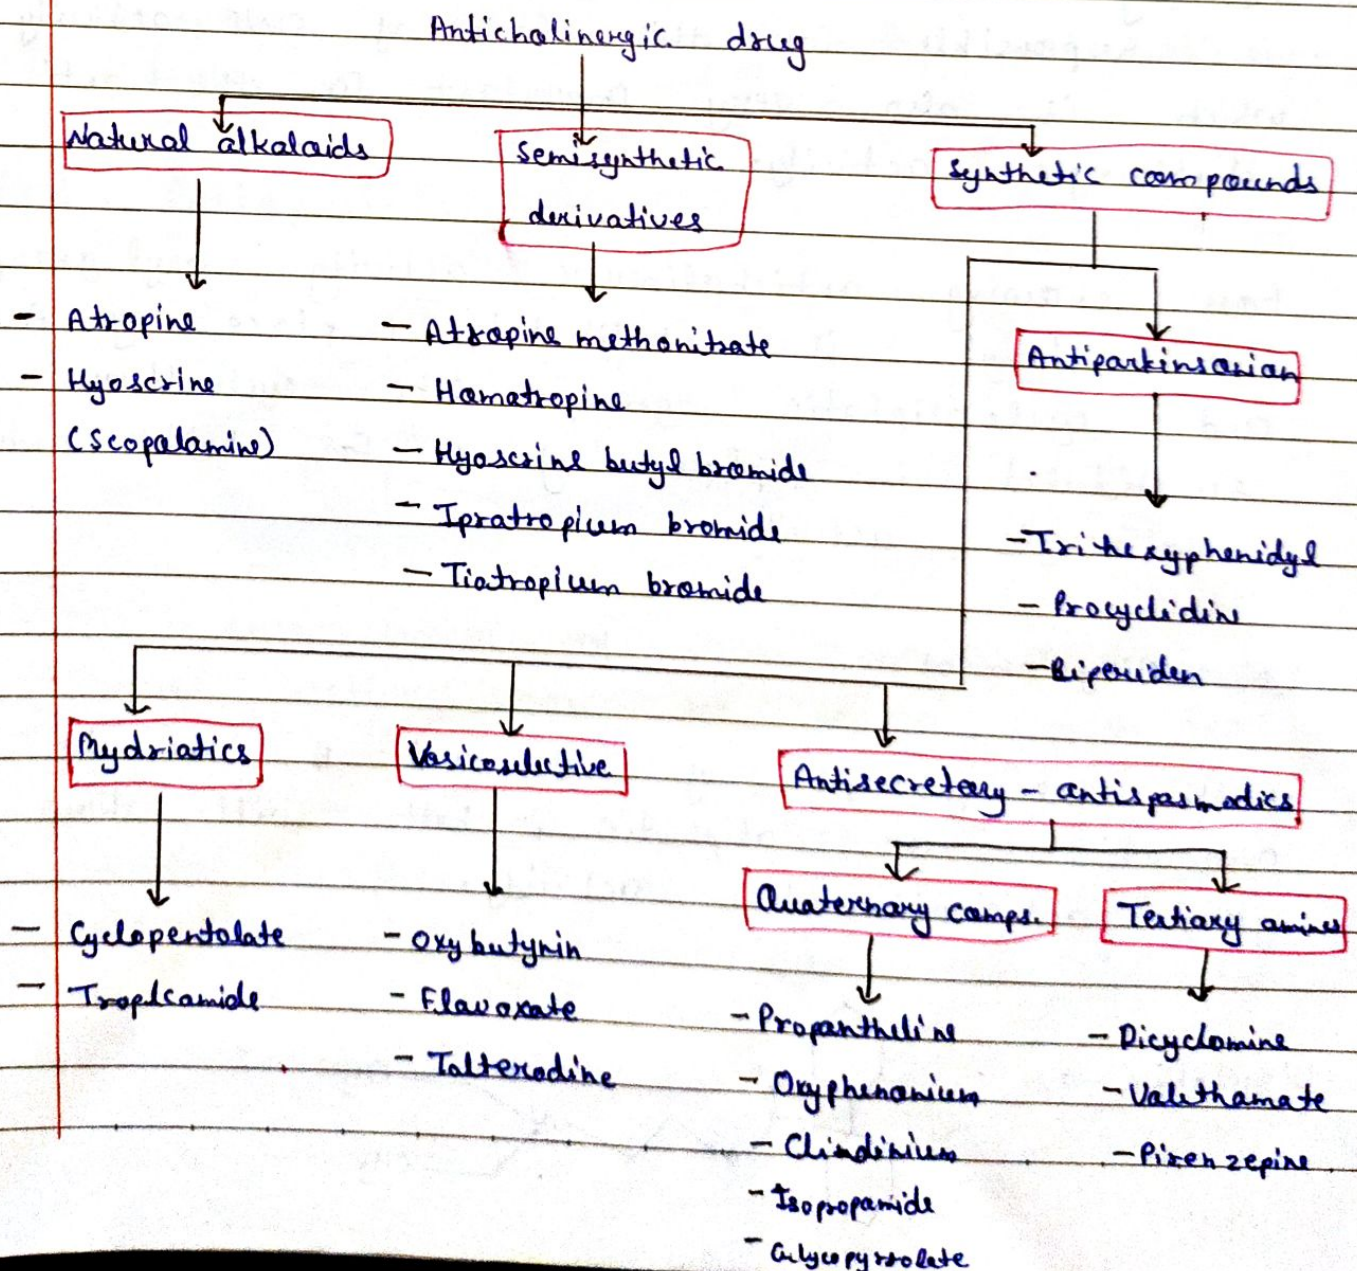 Anticholinergic drug
Natural alkaloids
Semisynthetic
derivatives
Synthetic compounds
- Atropine
- Hyoscrine
(Scopalamine)
- Atropine methonitrate
- Homatropine
- Hyoscrine butyl bromide
- Ipratropium bromide
- Tiotropium bromide
Antiparkinsonian
- Trihexyphenidyl
- Procyclidine
- Biperiden
Mydriatics
Vasicoselective
Antisecretory - antispasmodics
Quaternary comps.
Tertiary amines
- Cyclopentolate
- Tropicamide
- Oxybutynin
- Flavoxate
- Tolterodine
- Propantheline
- Oxyphenonium
- Clindinium
- Isopropamide
- Glycopyrrolate
- Dicyclomine
- Valethamate
- Pirenzepine